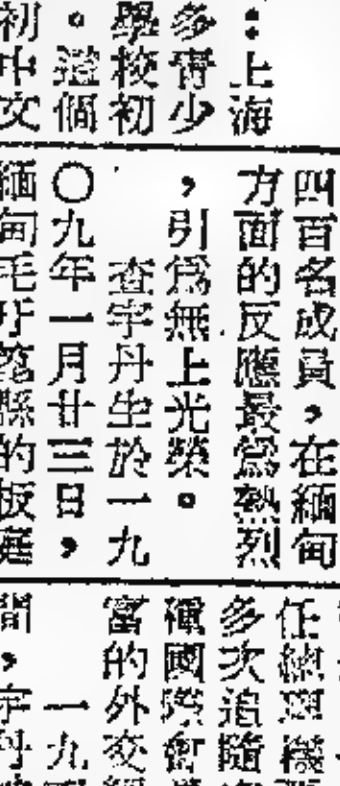 ：上海
多青少
學校初
。這個
初中文
四百名成員，在緬甸
方面的反應最為熱烈
，引為無上光榮。
查宇丹生於一九
〇九年一月廿三日，
緬甸毛
縣的板
任總理
多次追隨
國際會
富的外交
一九
間，宇丹